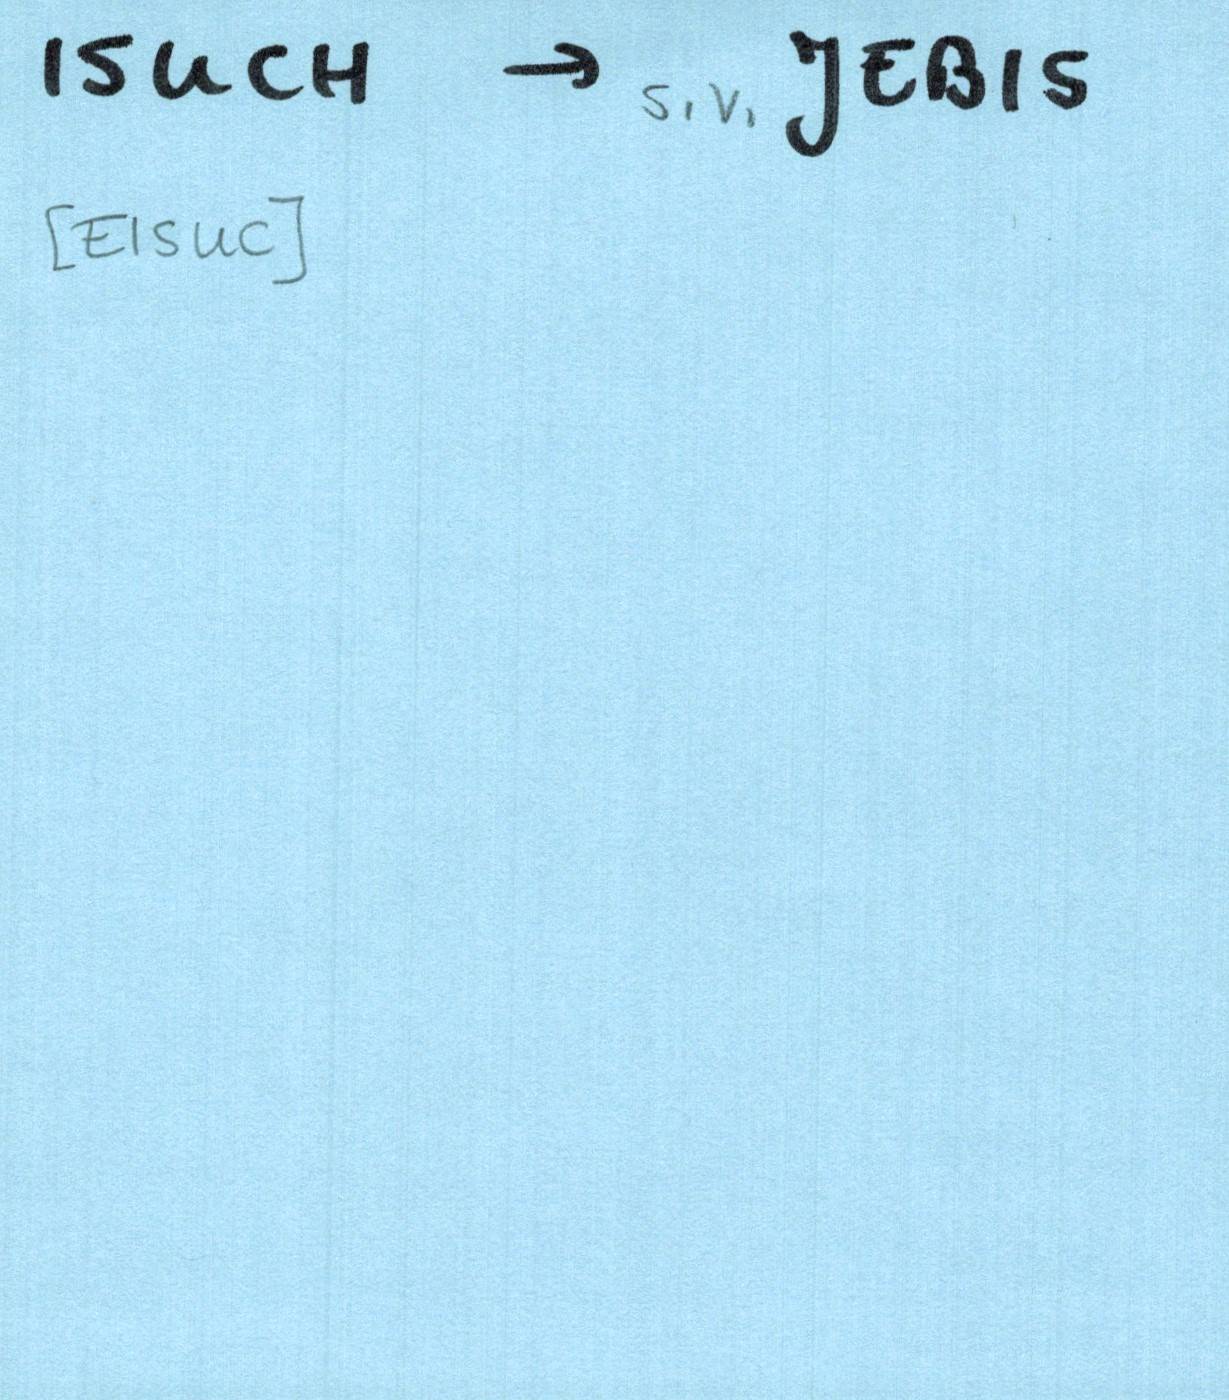 ISUCH → s.v. JEBIS
[EISUC]